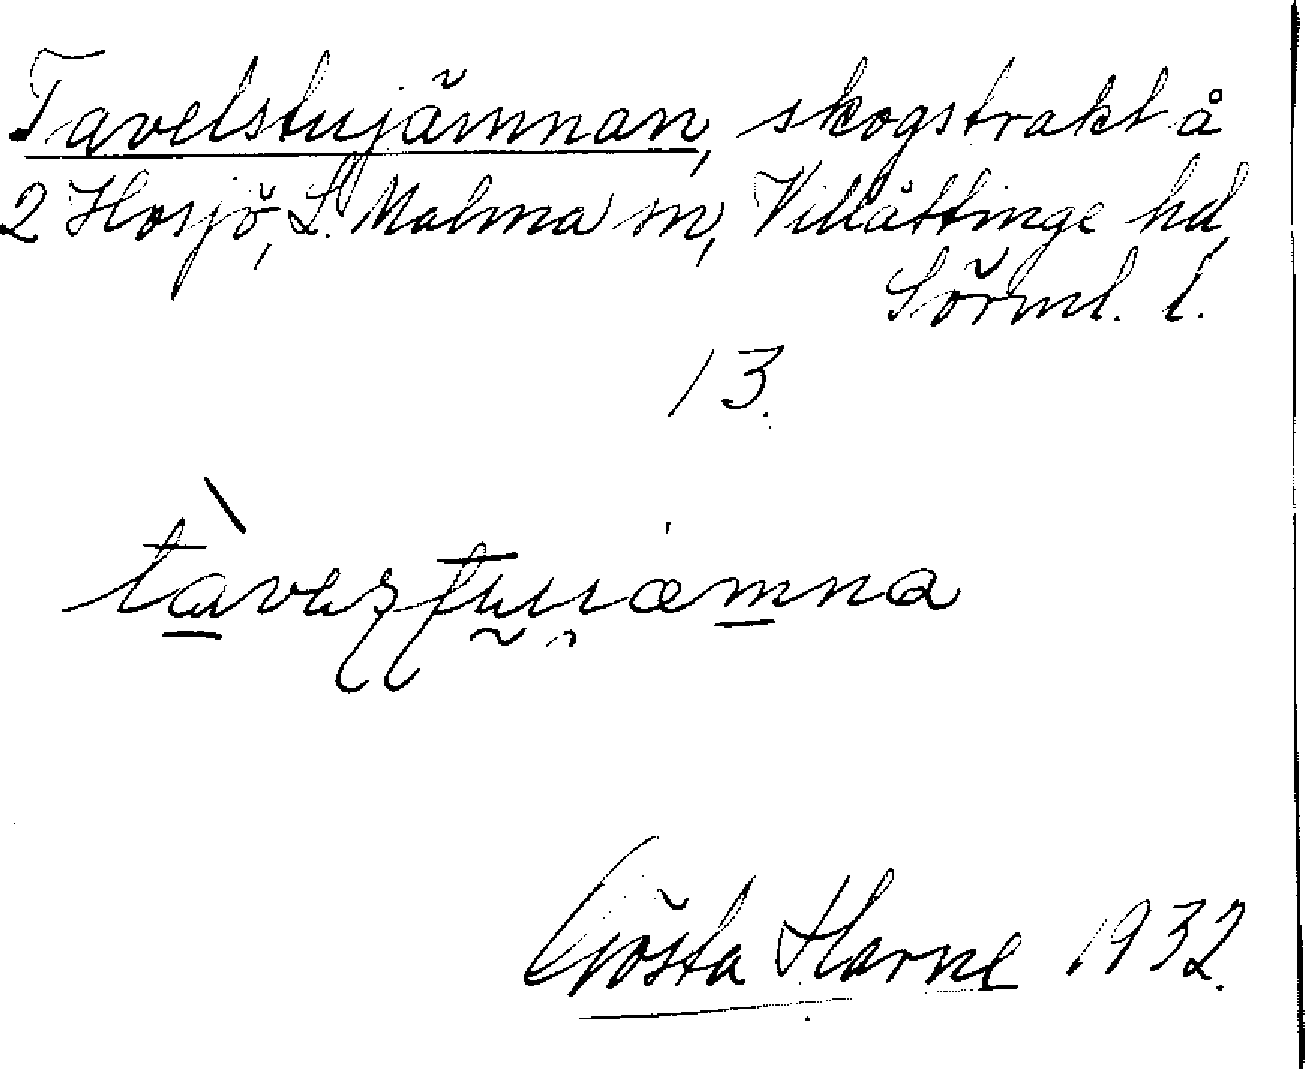 Tavelstujämnan, skogstrakt å
2 Hosjö, L. Malma sn, Villåttinge hd,
Sörml. l.
13.
Gösta Harne 1932.